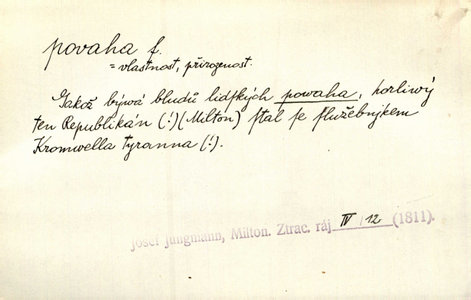 povaha f.
= vlastnost, přirozenost.
Jakož bývá bludů lidſkých povaha, horliwý
ten Republikán (!) (Milton) ſtal ſe ſlužebnjkem
Kromwella tyranna (!).
Josef Jungmann, Milton. Ztrac. ráj IV/12 (1811).